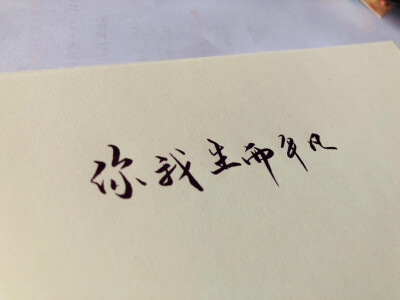 你我生而平凡